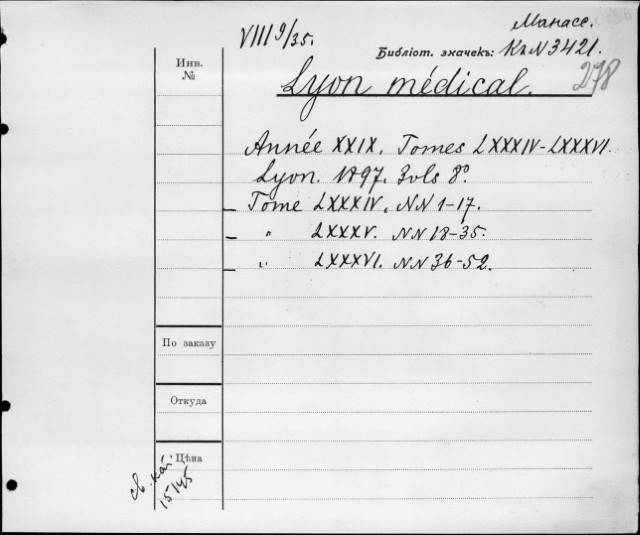 Манасс.
VIII 9/35.
Библіот. значекъ: К2N3421.
278
Инв.
№
Lyon médical.
Année XXIX. Tomes LXXXIV-LXXXVI.
Lyon. 1897. 3vls 8º
Tome LXXXIV. NN 1-17.
" LXXXV. NN 18-35.
" LXXXVI. NN 36-52.
По заказу
Откуда
Цѣна
св. кат.
15145